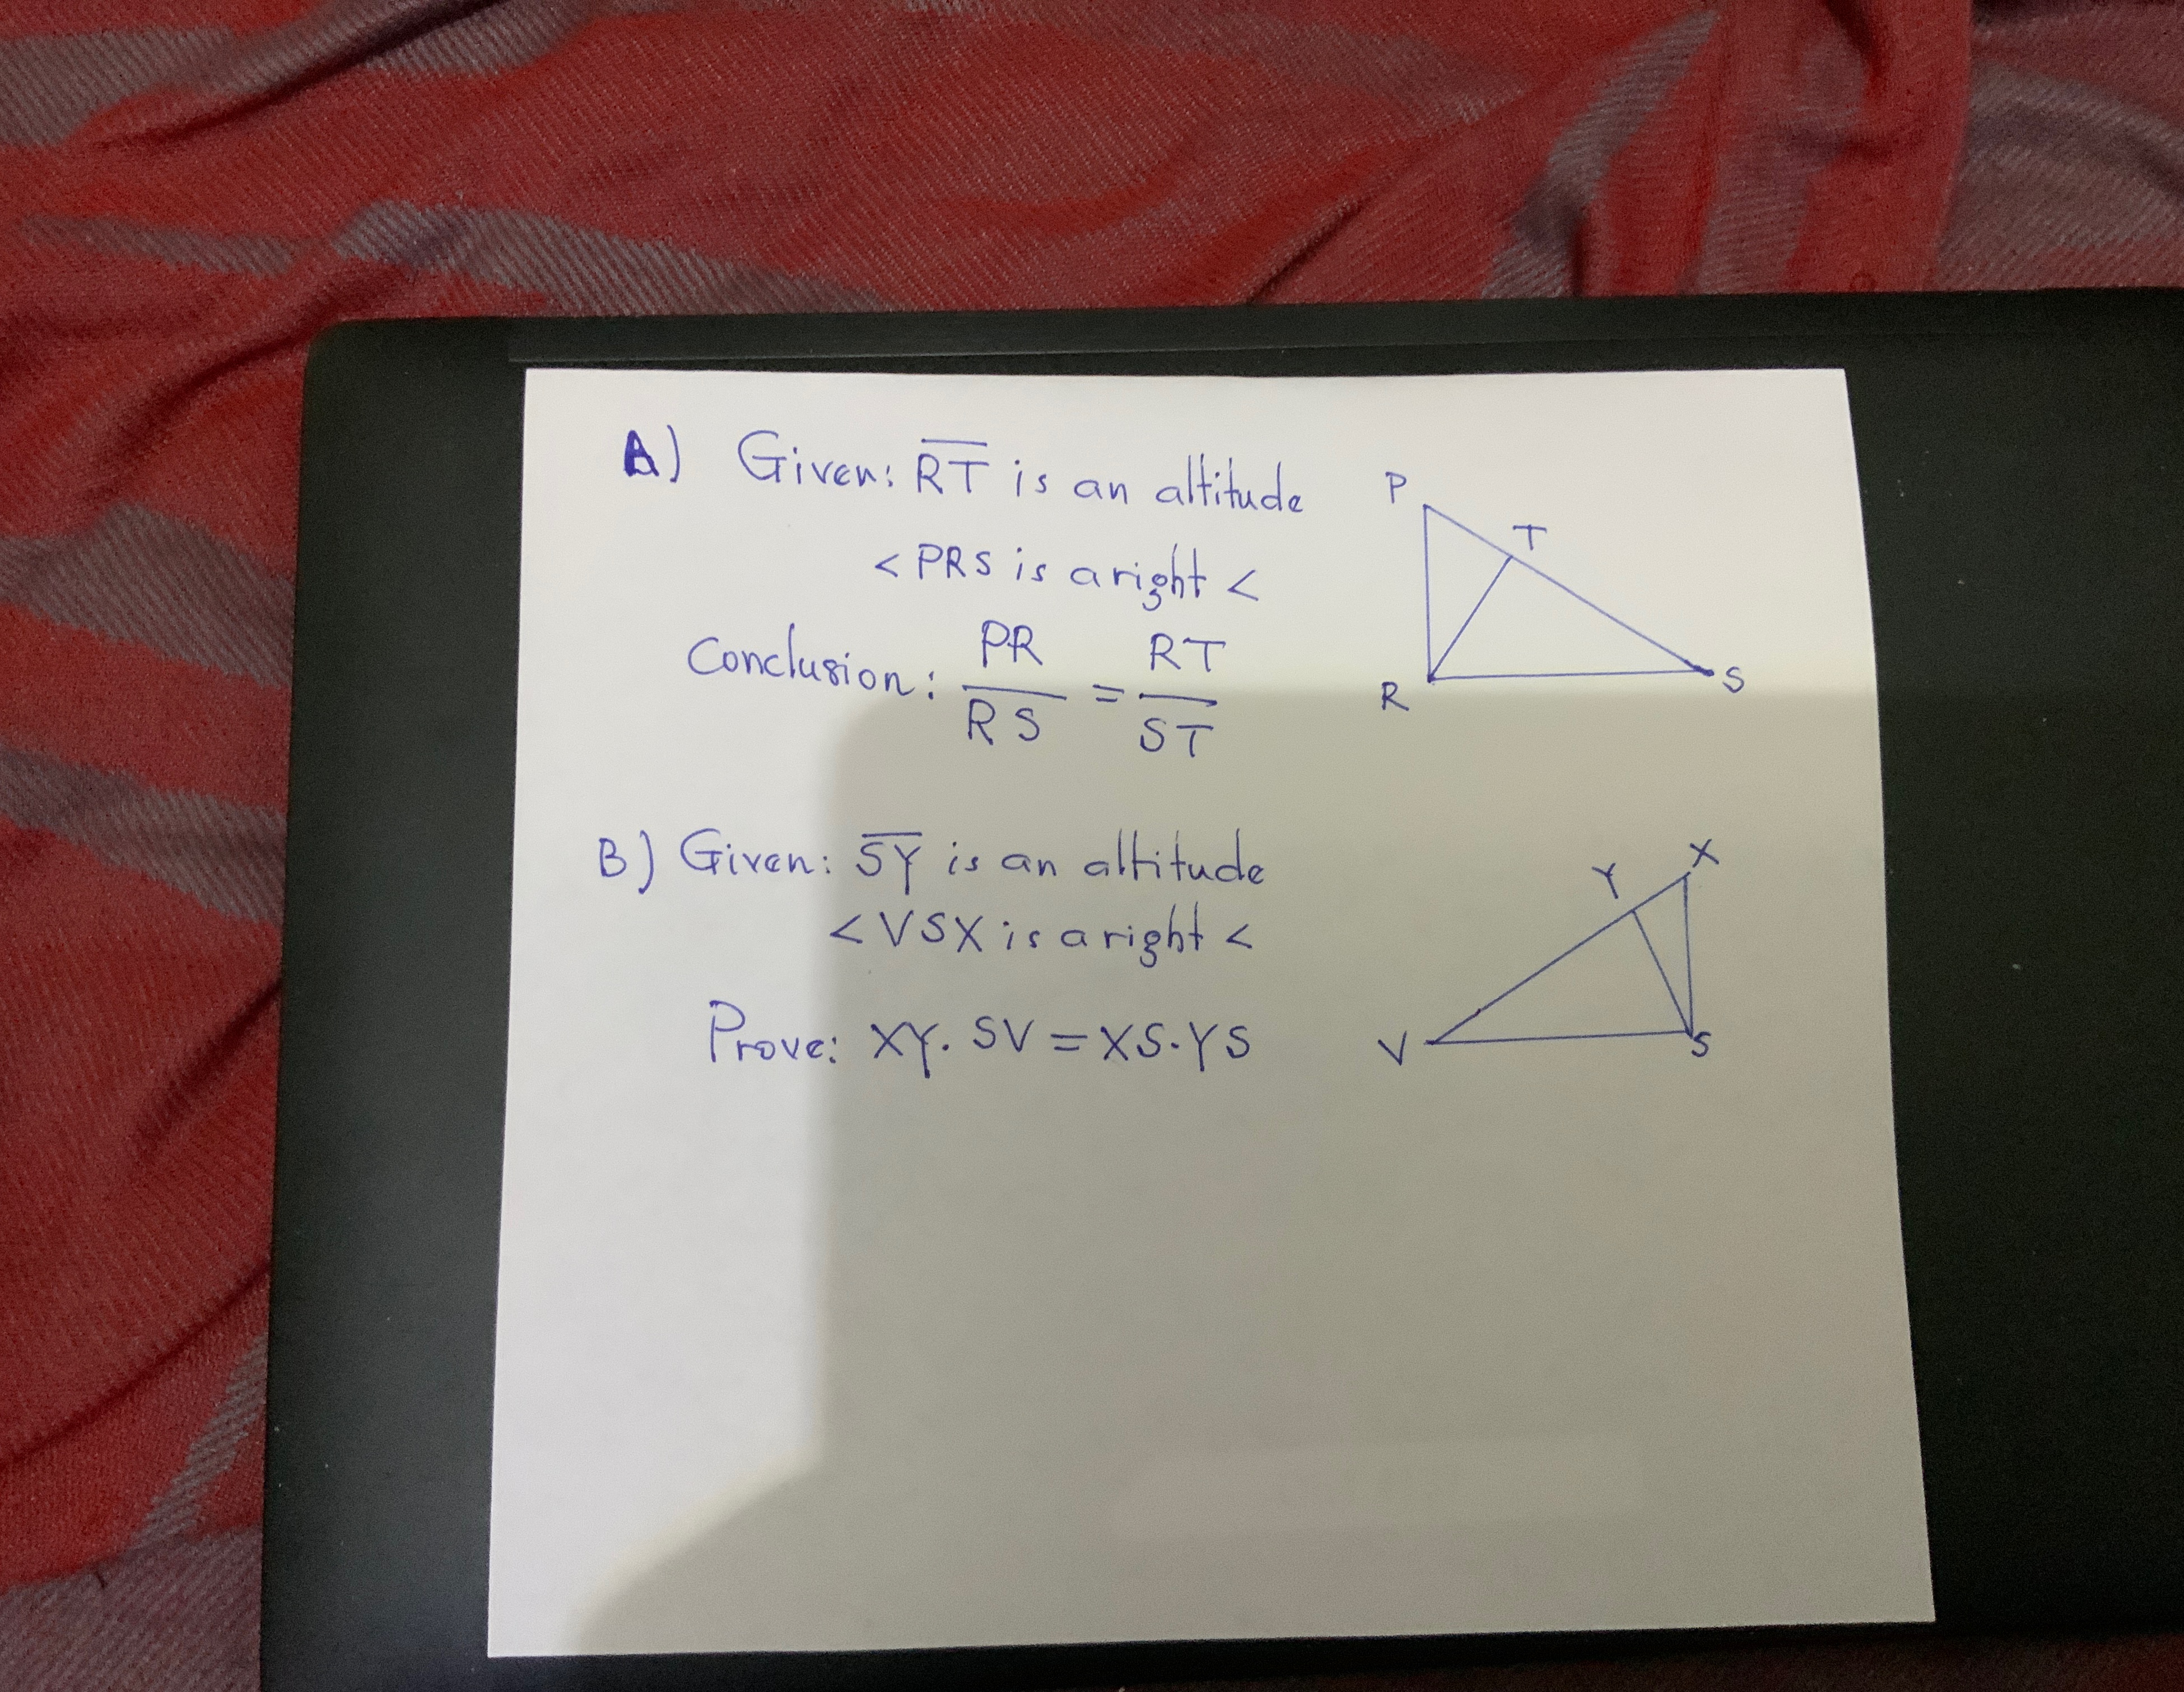 A) Given: R̅T̅ is an altitude
< PRS is a right <
Conclusion: PR/RS = RT/ST
P
T
R
S
B) Given: S̅Y̅ is an altitude
< VSX is a right <
Prove: XY. SV = XS.YS
X
Y
V
S